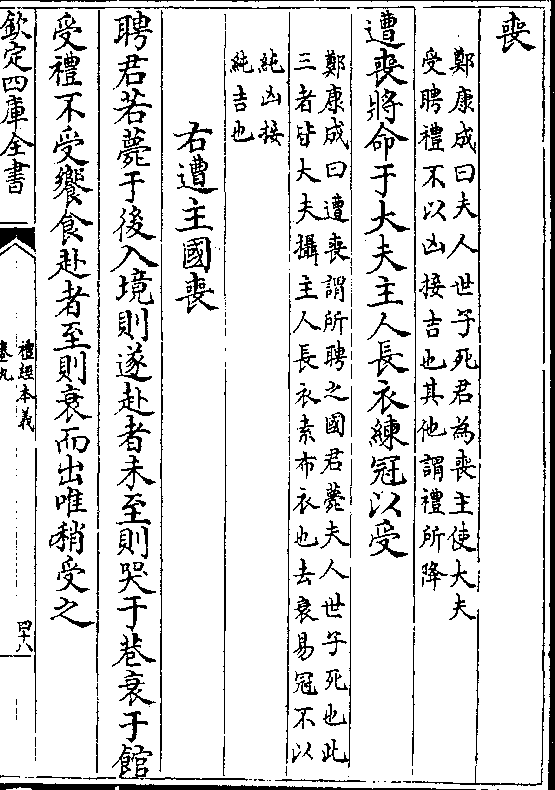 喪
鄭康成曰夫人世子死君為喪主使大夫
受聘禮不以凶接吉也其他謂禮所降
遭喪將命于大夫主人長衣練冠以受
鄭康成曰遭喪謂所聘之國君薨夫人世子死也此
三者皆大夫攝主人長衣素布衣也去衰易冠不以
純凶接
純吉也
右遭主國喪
聘君若薨于後入境則遂赴者未至則哭于巷衰于館
受禮不受饗食赴者至則衰而出唯稍受之
欽定四庫全書
禮經本義
卷九
四十八